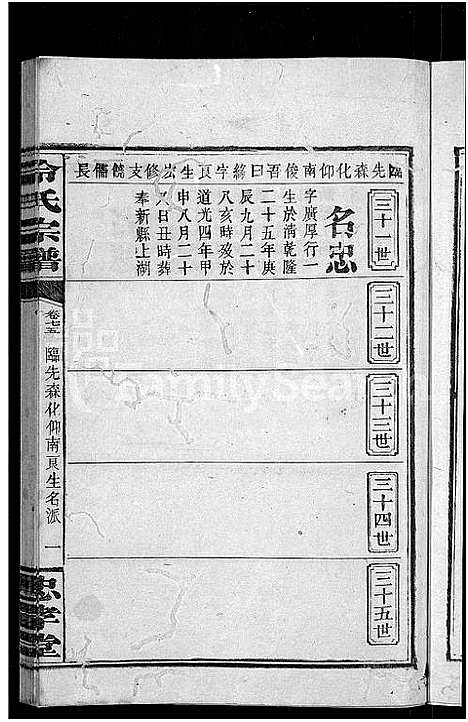 臨先森化仰南俊百曰字良生宏修支儒長
三十一世
名忠
字廣厚行一
生於清乾隆
二十五年庚
辰九月二十
八亥時歿於
道光四年甲
申八月二十
八日丑時葬
奉新縣上湖
三十二世
三十三世
三十四世
三十五世
冷氏宗譜
卷七五
臨先森化仰南良生名派
一
忠孝堂
FamilySearch